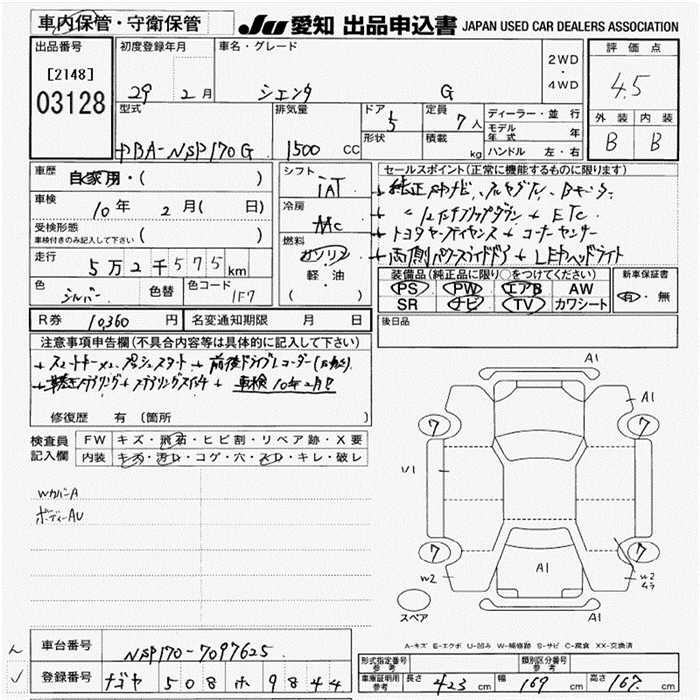 車内保管・守衛保管 JU 愛知 出品申込書 JAPAN USED CAR DEALERS ASSOCIATION
出品番号 [2148] 03128
初度登録年月 29 2月
車名・グレード シエンタ G
2WD・4WD
評価点 4.5
外装 B 内装 B
型式 DBA-NSP170G
排気量 1500 cc
ドア 5 形状
定員 7人 積載 kg
ディーラー・並行
モデル年式 年
ハンドル 左・右
車歴 自家用・( )
車検 10年 2月( 日)
受検形態 車検付きのみ記入して下さい ( )
走行 5万2千575km
色 シルバー 色替 色コード 1F7
シフト iAT
冷房 AAC
燃料 ガソリン 軽・油 ( )
セールスポイント(正常に機能するものに限ります)
+純正ナビ、フルセグTV、Bモニター
+12インチフリップダウン + ETC
+トヨタセーフティセンス + コーナーセンサー
+両側パワースライドドア + LEDヘッドライト
装備品(純正品に限り○をつけてください)
PS PW エアB AW
SR ナビ TV カワシート
新車保証書 有・無
R券 10,360円 名変通知期限 月 日
後日品
注意事項申告欄(不具合内容等は具体的に記入して下さい)
+スマートキー×2、プッシュスタート + 前後ドライブレコーダー
車検10年2月
修復歴 有 (箇所
検査員記入欄
FW キズ・飛石・ヒビ割・リペア跡・X要
内装 キズ・汚れ・コゲ・穴・スレ・キレ・破レ
WカバーA
ボディーAU
A1
A1
7 7
U1
7 7
W2 A1 W2
スペア A1
A-キズ E-エクボ U-凹み W-補修跡 S-サビ C-腐食 XX-交換済
車台番号 NSP170-7097625
登録番号 ナゴヤ 508 ホ 9844
形式指定番号 参考 類別区分番号 参考
車庫証明用 参考 長さ 423 cm 幅 169 cm 高さ 167 cm